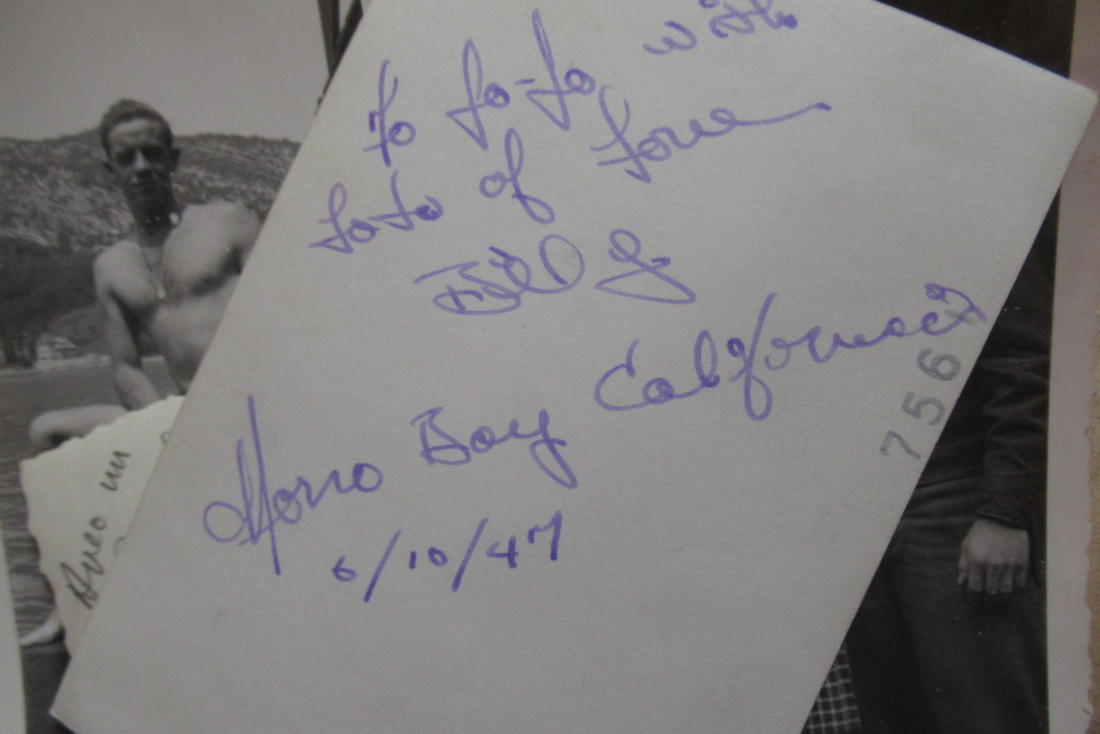 To Jo-Jo with
Lots of Love
Bill
Morro Bay California
6/10/47
Avec un